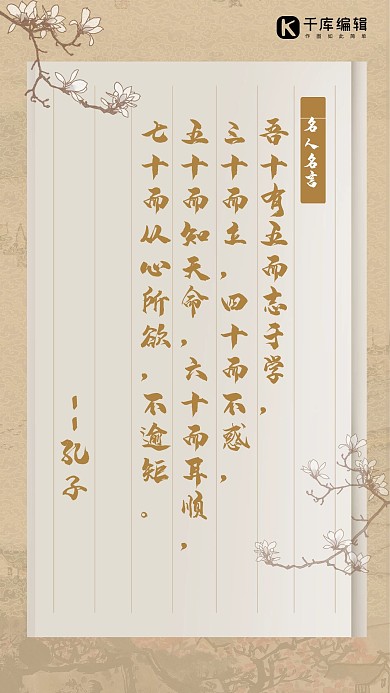 千库编辑
作图如此简单
名人名言
吾十有五而志于学，
三十而立，四十而不惑，
五十而知天命，六十而耳顺，
七十而从心所欲，不逾矩。
--孔子